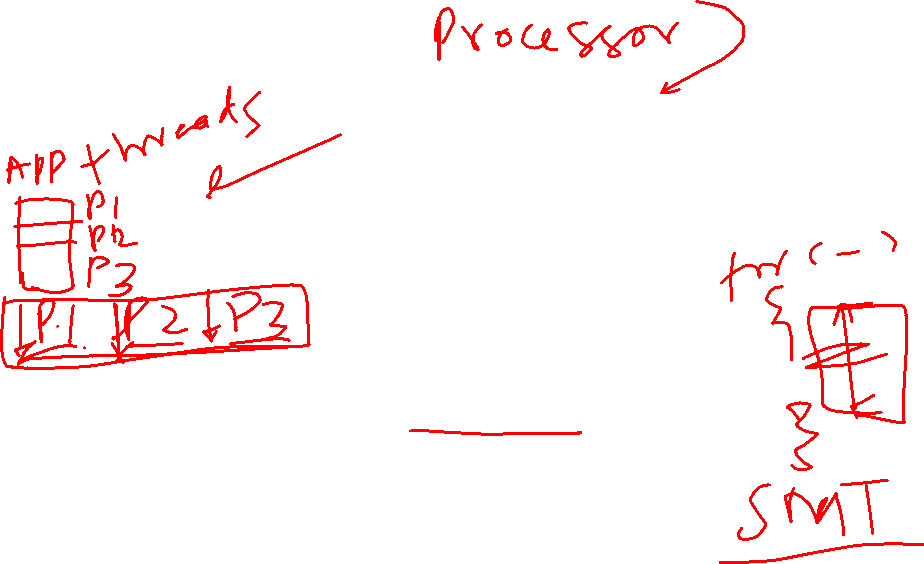 Processor
APP threads
P1
P2
P3
P.1. P2 P3
for (-)
{
}
SMT